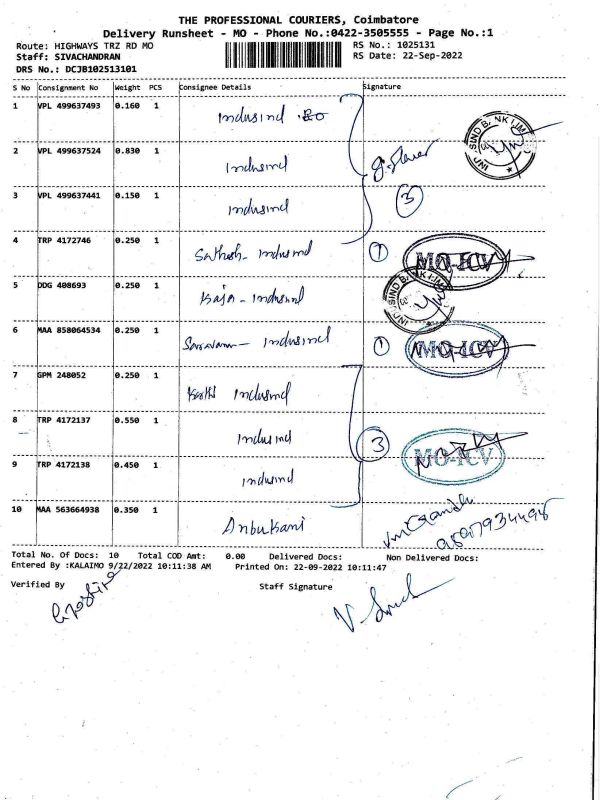 THE PROFESSIONAL COURIERS, Coimbatore
Delivery Runsheet - MO - Phone No.:0422-3505555 - Page No.:1
Route: HIGHWAYS TRZ RD MO RS No.: 1025131
Staff: SIVACHANDRAN RS Date: 22-Sep-2022
DRS No.: DCJB102513101
S No Consignment No Weight PCS Consignee Details Signature
1 VPL 499637493 0.160 1 Indusind
2 VPL 499637524 0.830 1 Indusind
3 VPL 499637441 0.150 1 Indusind 3
4 TRP 4172746 0.250 1 Sathish - Indusind 1 MO-ICV
5 DDG 408693 0.250 1 Raja - Indusind
6 MAA 858064534 0.250 1 Saravanan - Indusind 1 MO-ICV
7 GPM 248052 0.250 1 Indusind
8 TRP 4172137 0.550 1 Indusind 3 MO-ICV
9 TRP 4172138 0.450 1 Indusind
10 MAA 563664938 0.350 1 Anbukani
Total No. Of Docs: 10 Total COD Amt: 0.00 Delivered Docs: Non Delivered Docs:
Entered By :KALAIMO 9/22/2022 10:11:38 AM Printed On: 22-09-2022 10:11:47
Verified By Staff Signature